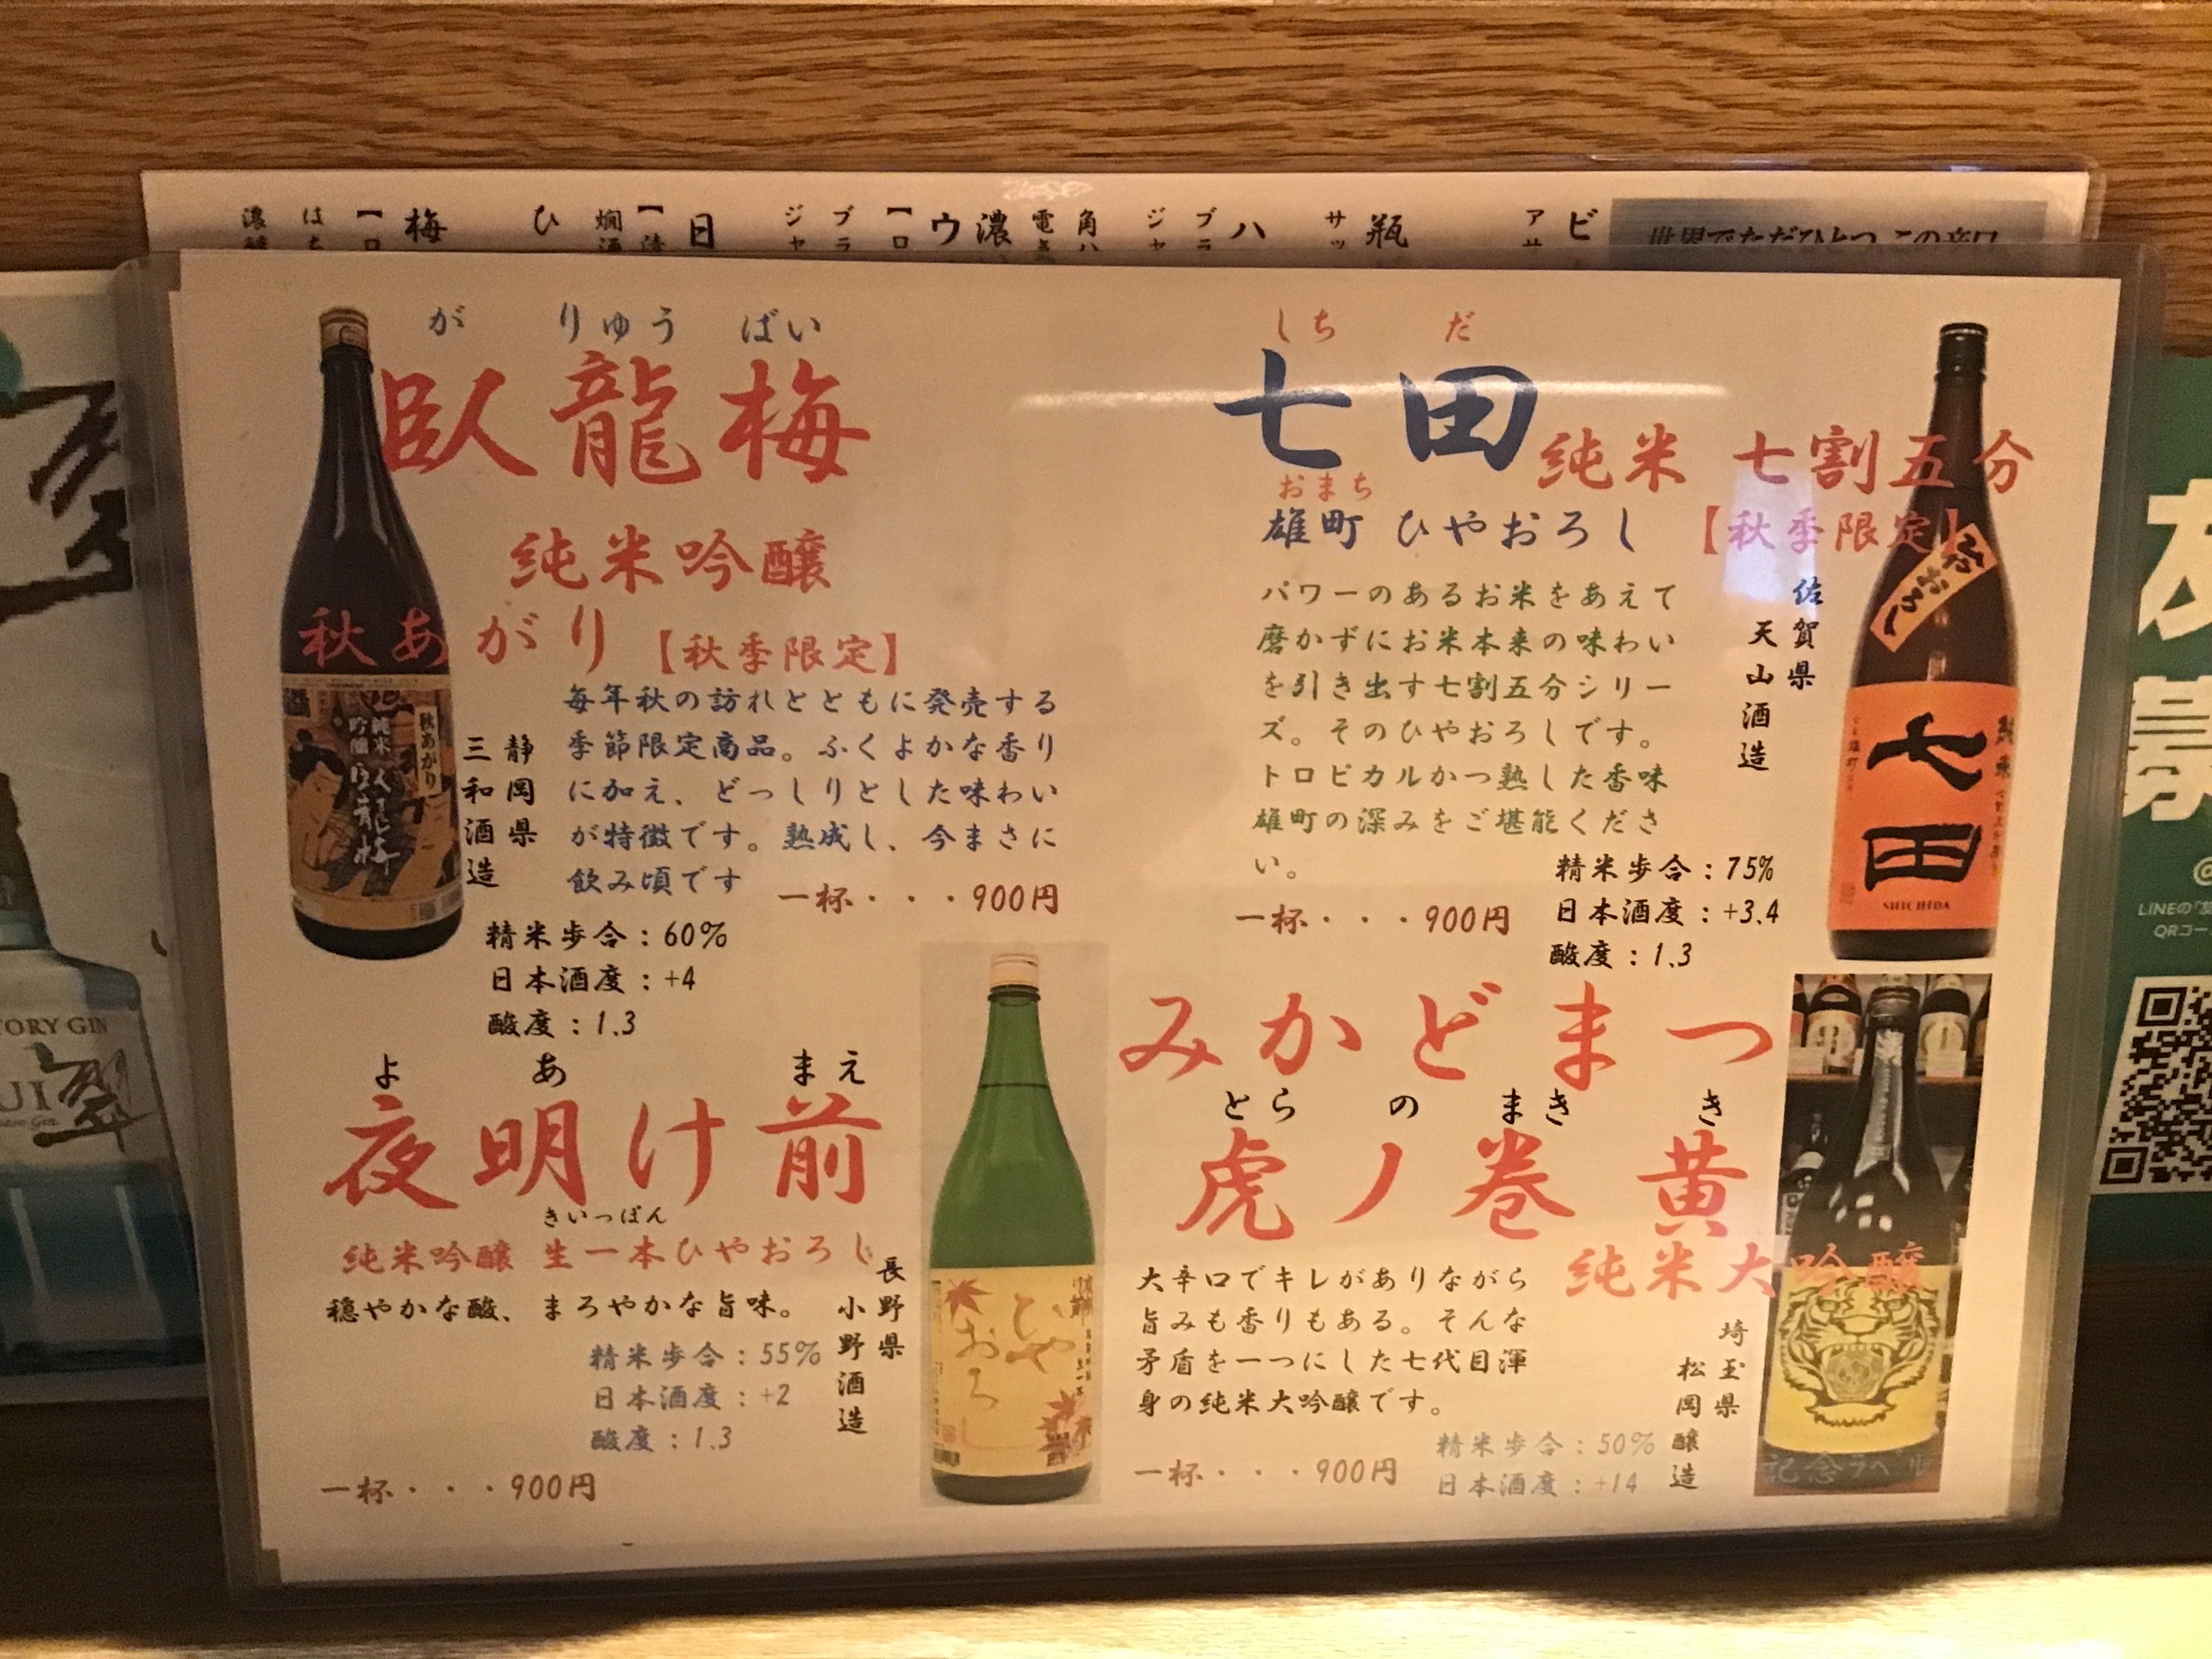 が りゅう ばい
臥龍梅
純米吟醸
秋あがり【秋季限定】
毎年秋の訪れとともに発売する
季節限定商品。ふくよかな香り
に加え、どっしりとした味わい
が特徴です。熟成し、今まさに
飲み頃です
静岡県
三和酒造
一杯・・・900円
精米歩合：60%
日本酒度：+4
酸度：1.3
しち だ
七田 純米 七割五分
おまち
雄町 ひやおろし 【秋季限定】
パワーのあるお米をあえて
磨かずにお米本来の味わい
を引き出す七割五分シリー
ズ。そのひやおろしです。
トロピカルかつ熟した香味
雄町の深みをご堪能くださ
い。
佐賀県
天山酒造
一杯・・・900円
精米歩合：75%
日本酒度：+3.4
酸度：1.3
七田
SHICHIDA
よ あ まえ
夜明け前
きいっぽん
純米吟醸 生一本ひやおろし
穏やかな酸、まろやかな旨味。
長野県
小野酒造
精米歩合：55%
日本酒度：+2
酸度：1.3
一杯・・・900円
ひや
おろし
みかどまつ
とら の まき き
虎ノ巻 黄
純米大吟醸
大辛口でキレがありながら
旨みも香りもある。そんな
矛盾を一つにした七代目渾
身の純米大吟醸です。
埼玉県
松岡醸造
一杯・・・900円
精米歩合：50%
日本酒度：+14
記念ラベル
秋あがり
純米
吟醸
臥龍梅
世界でただひとつ、この辛口
TORY GIN
翠
LINEの「友
QRコー